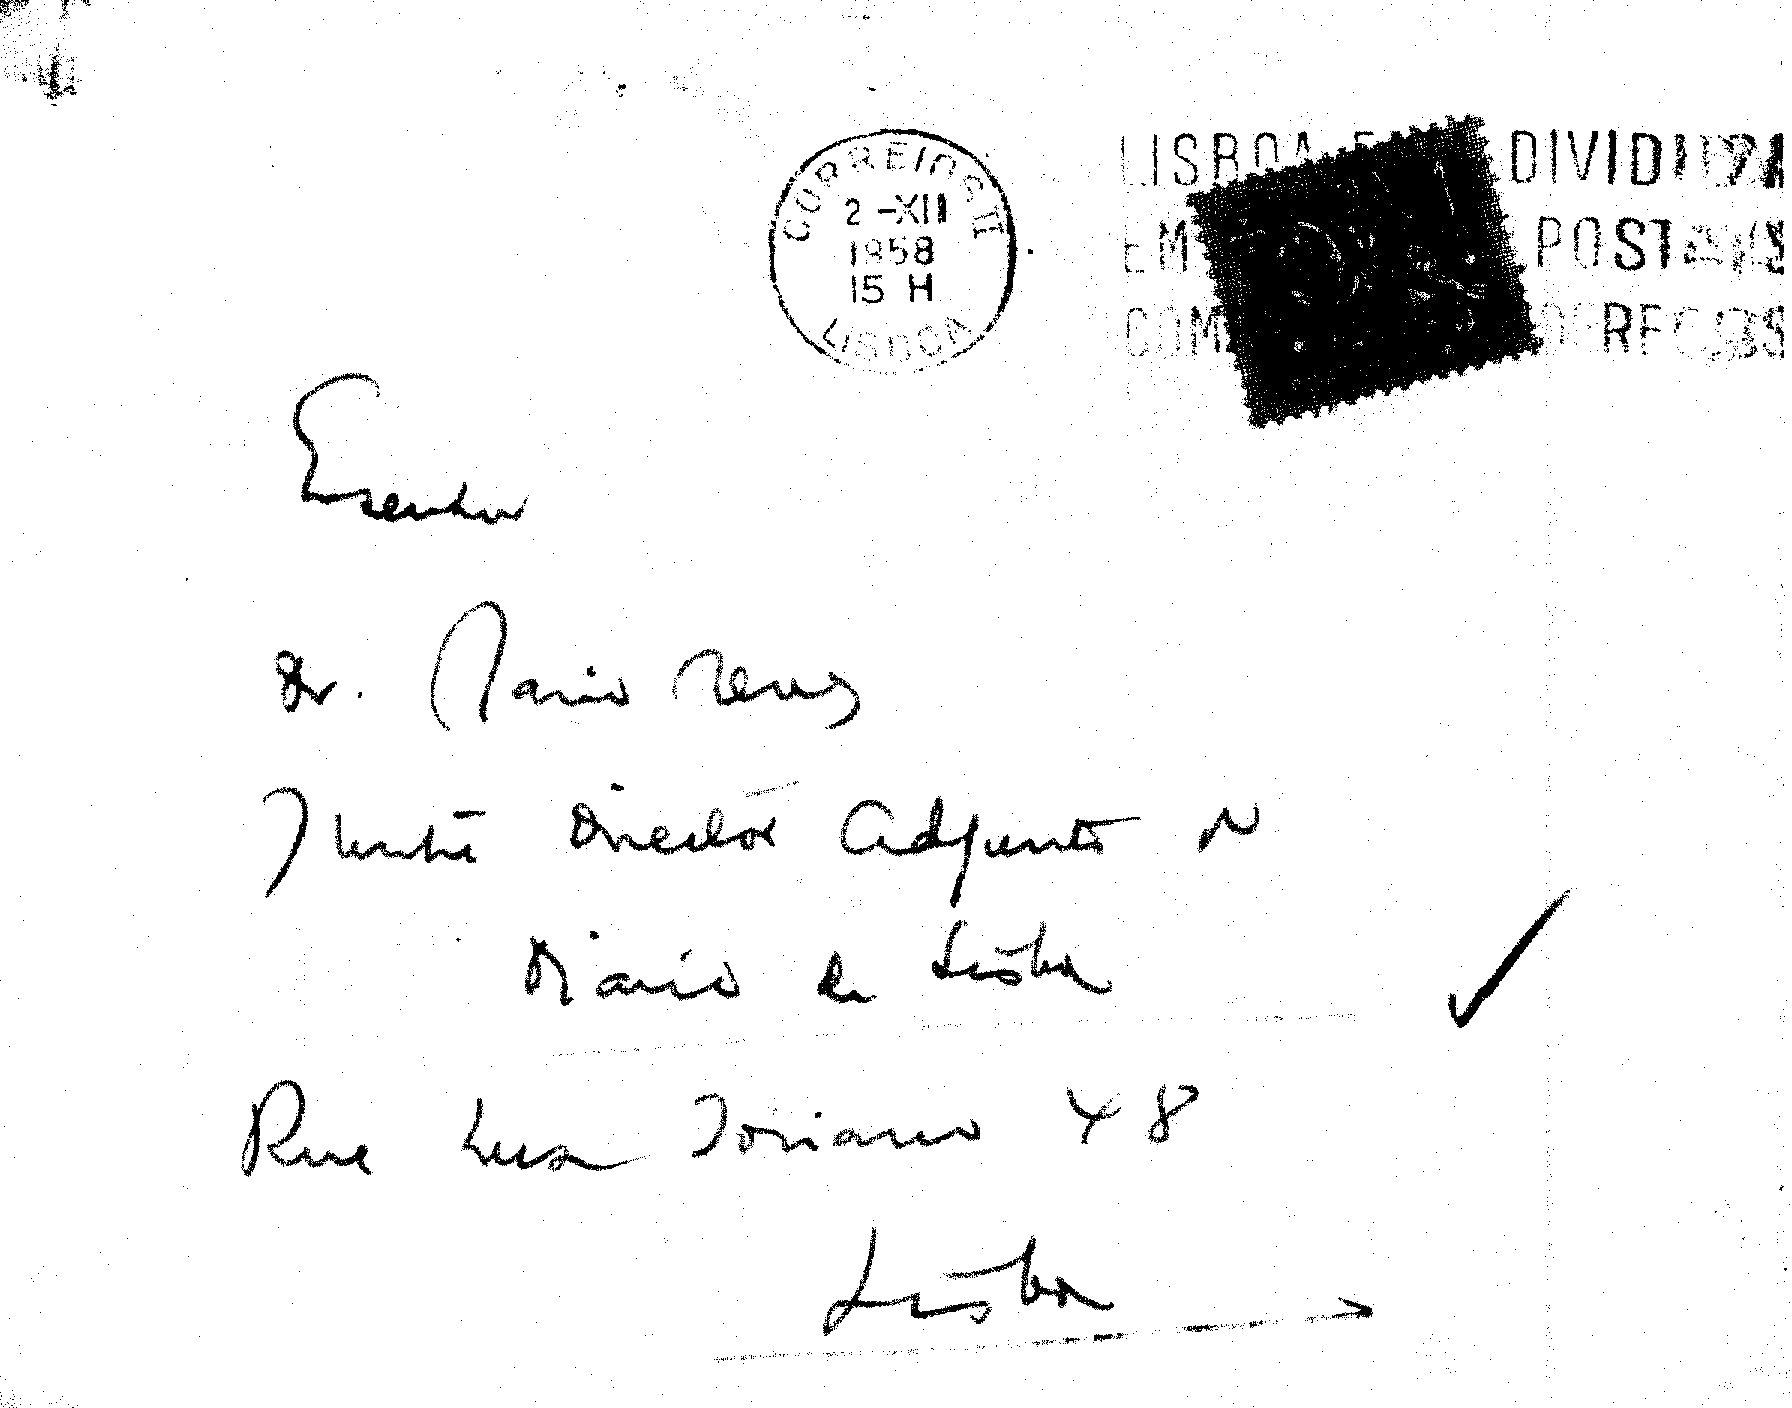 CORREIOS II
2-XII
1958
15 H
LISBOA
LISBOA DIVIDIDA
EM POSTAIS
COM RECEBE
Dr. Mario Neves
Ilustre Director Adjunto do
Diario de Lisboa
Rua Luz Soriano 48
Lisboa